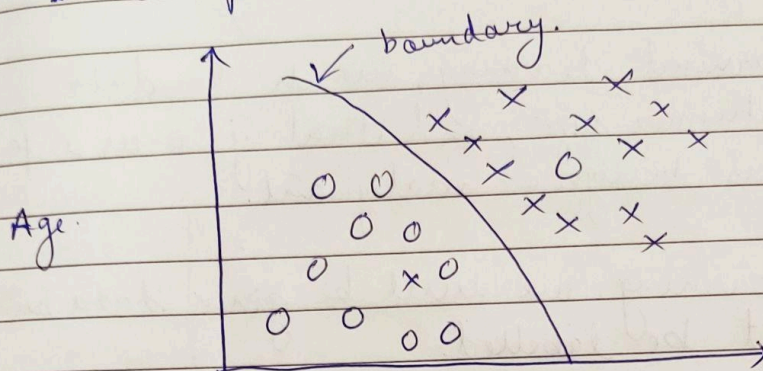 boundary.
Age.